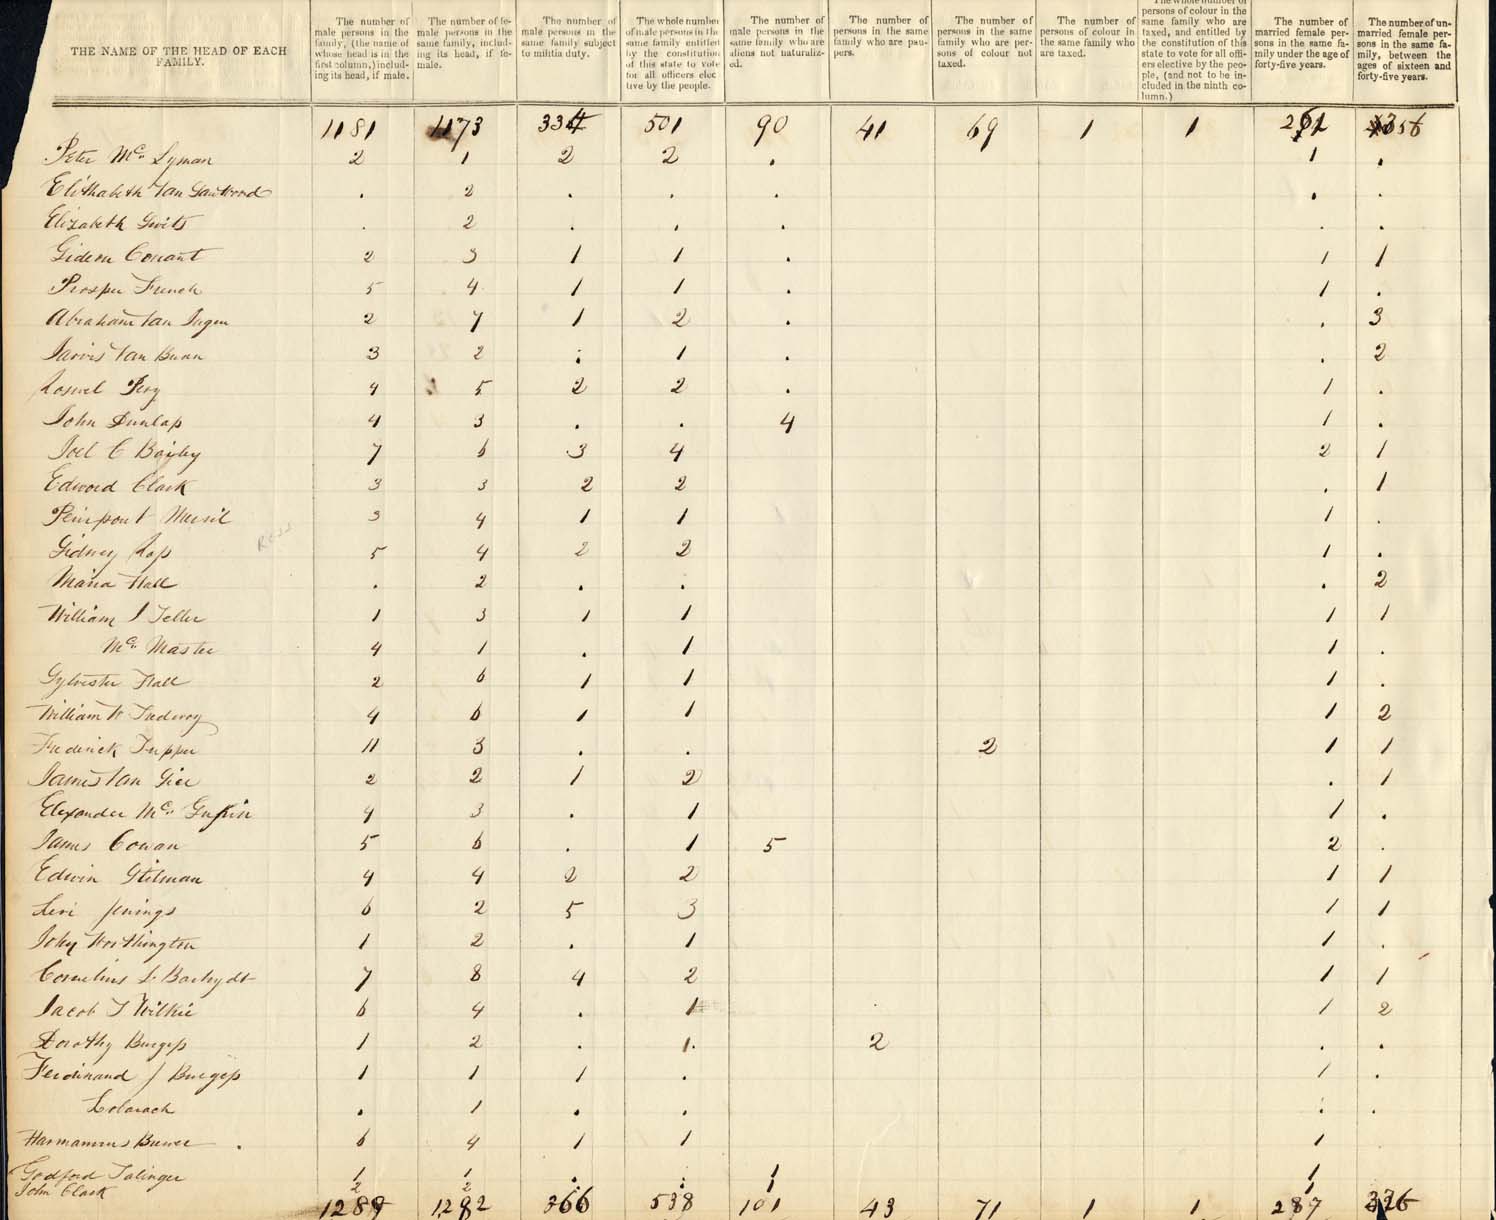 THE NAME OF THE HEAD OF EACH FAMILY.
The number of male persons in the family, (the name of whose head is in the first column,) including its head, if male.
The number of female persons in the same family, including its head, if female.
The number of male persons in the same family subject to militia duty.
The whole number of male persons in the same family entitled by the constitution of this state to vote for all officers elective by the people.
The number of male persons in the same family who are aliens not naturalized.
The number of persons in the same family who are paupers.
The number of persons in the same family who are persons of colour not taxed.
The number of persons of colour in the same family who are taxed.
The whole number of persons of colour in the same family who are taxed, and entitled by the constitution of this state to vote for all officers elective by the people, (and not to be included in the ninth column.)
The number of married female persons in the same family under the age of forty-five years.
The number of unmarried female persons in the same family, between the ages of sixteen and forty-five years.
1181 1173 334 501 90 41 69 1 1
Peter Mc. Lyman 2 1 2 2 . 1 .
Elithabeth Van . 2 . . . . .
Elizabeth . 2 . . . . .
Gideon Conant 2 3 1 1 . 1 1
Prosper French 5 4 1 1 . 1 .
Abraham Van Ingen 2 7 1 2 . . 3
Jarvis Van Buren 3 2 . 1 . . 2
Roswel Pery 4 5 2 2 . 1 .
John Dunlap 4 3 . . 4 1 .
Joel C Bayley 7 6 3 4 2 1
Edword Clark 3 3 2 2 . 1
3 4 1 1 1 .
Ross
Sidney Ross 5 4 2 2 1 .
Maria Hall . 2 . . . 2
William J Teller 1 3 1 1 1 1
Mc. Master 4 1 . 1 1 .
Sylvester Hall 2 6 1 1 1 .
William W 4 6 1 1 1 2
Frederick Tupper 11 3 . . 2 1 1
James Van 2 2 1 2 . 1
Elexander Mc. 4 3 . 1 1 .
James Cowan 5 6 . 1 5 2 .
Edwin Stilman 4 4 2 2 1 1
Levi Jenings 6 2 5 3 1 1
John Worthington 1 2 . 1 1 .
Cornelius L Barhydt 7 8 4 2 1 1
Jacob T Wilkie 6 4 . 1 1 2
Dorothy Burgess 1 2 . 1. 2 . .
Ferdinand J Burgess 1 1 1 . 1 .
. 1 . . . .
Harmannus Bruwer 6 4 1 1 1 .
Godford 1 1 . . 1 1
John Clark 2 2 . . 1 1
1282 366 538 101 43 71 1 1 287